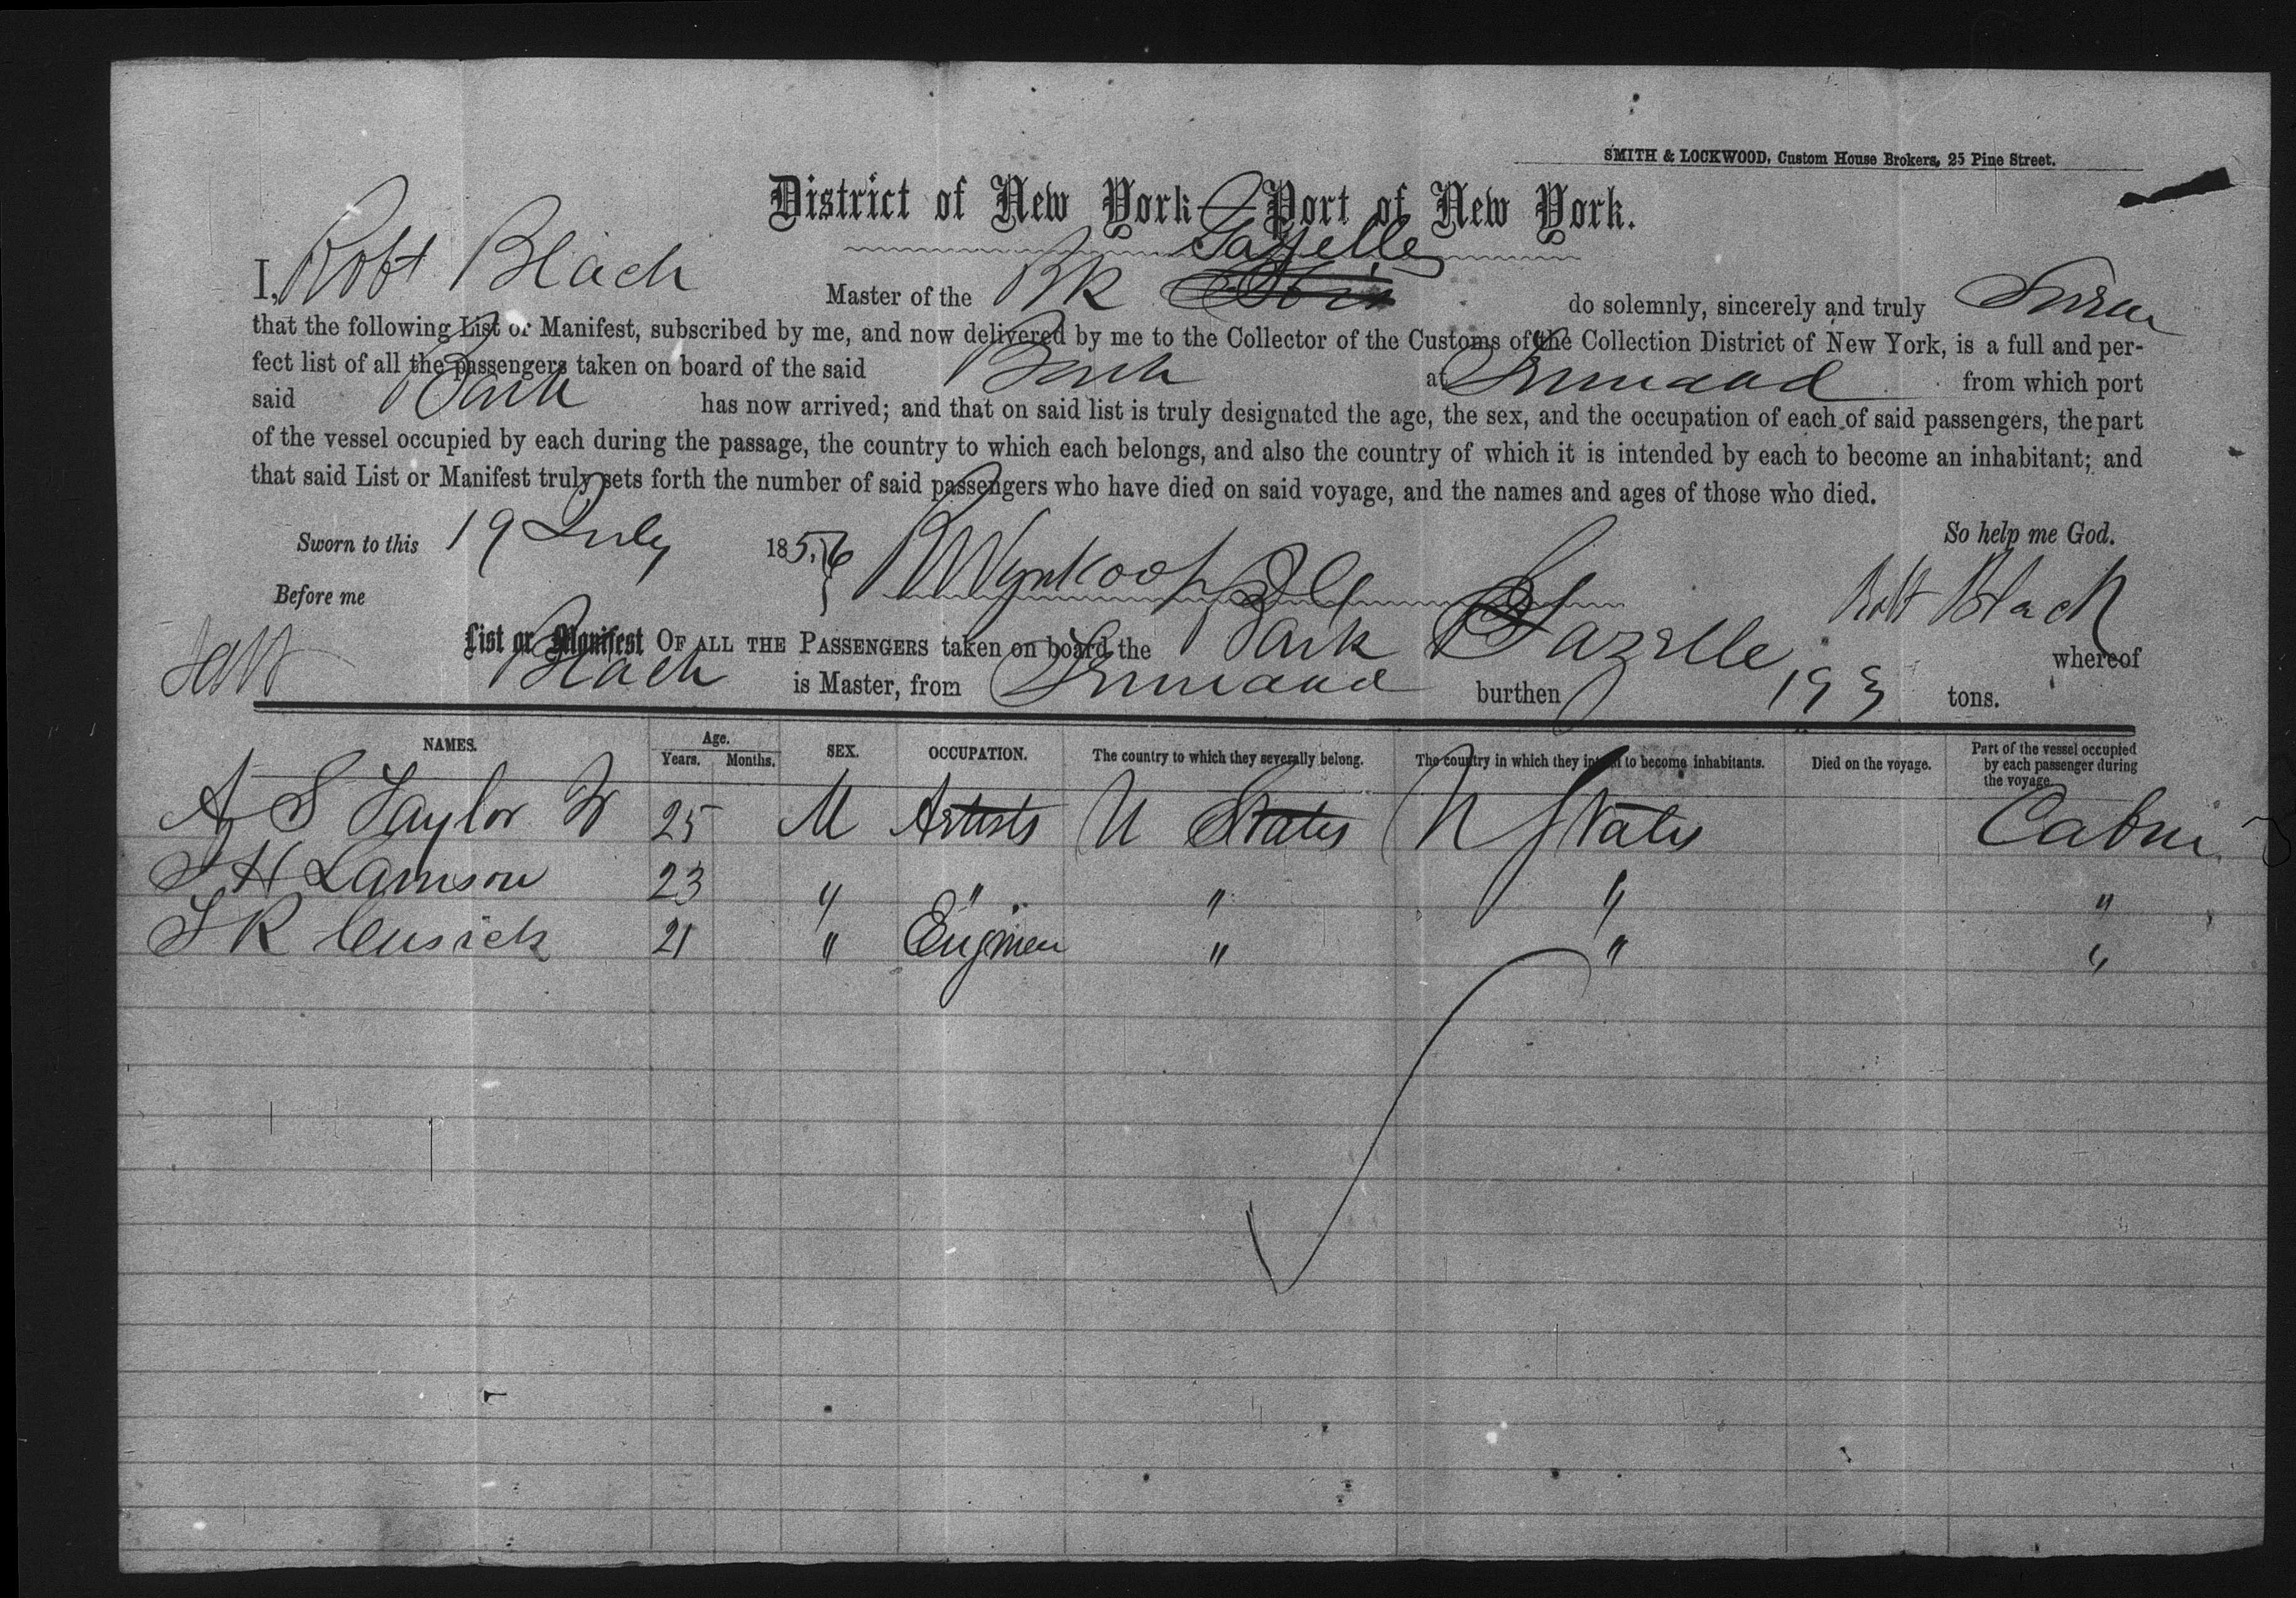 SMITH & LOCKWOOD, Custom House Brokers, 25 Pine Street.
District of New York—Port of New York.
Gazelle
I, Robt Blach Master of the Bk do solemnly, sincerely and truly Swear
that the following List or Manifest, subscribed by me, and now delivered by me to the Collector of the Customs of the Collection District of New York, is a full and per-
fect list of all the passengers taken on board of the said Bark at from which port
said Bark has now arrived; and that on said list is truly designated the age, the sex, and the occupation of each of said passengers, the part
of the vessel occupied by each during the passage, the country to which each belongs, and also the country of which it is intended by each to become an inhabitant; and
that said List or Manifest truly sets forth the number of said passengers who have died on said voyage, and the names and ages of those who died.
Sworn to this 19 July 1856 So help me God.
Before me Wynkoop Robt Black
List or Manifest OF ALL THE PASSENGERS taken on board the Bark Gazelle whereof
Blach is Master, from burthen 193 tons.
NAMES. Age. Years. Months. SEX. OCCUPATION. The country to which they severally belong. The country in which they intend to become inhabitants. Died on the voyage. Part of the vessel occupied by each passenger during the voyage.
A S Taylor Jr 25 M Artists U States U States Cabin
H Lamson 23 " " " " "
R Cusick 21 " " " "